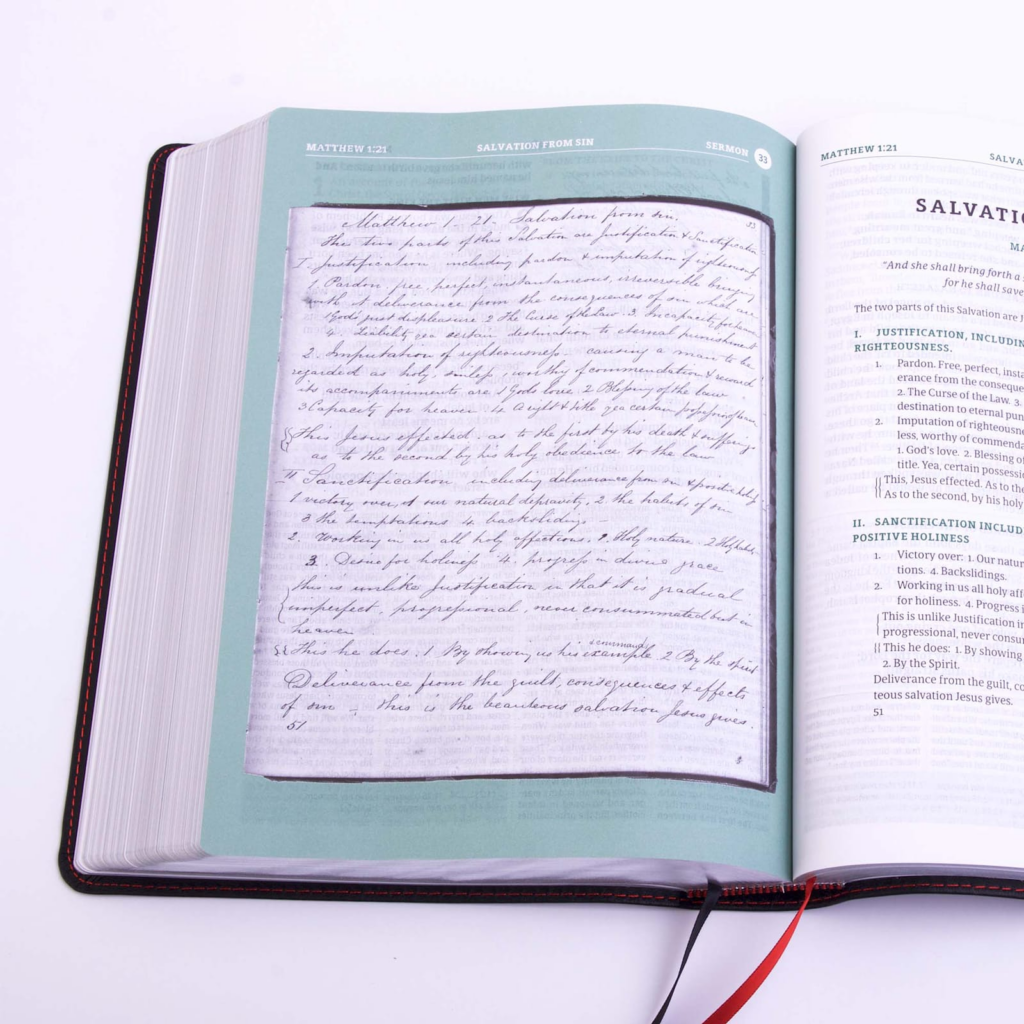 MATTHEW 1:21 SALVATION FROM SIN SERMON 33
Matthew 1. 21. Salvation from sin. 33
The two parts of this Salvation are Justification & Sanctification
I. Justification including pardon & imputation of righteousness
1. Pardon free, perfect, instantaneous, irreversible bringing
with it deliverance from the consequences of sin which are
1 God's just displeasure 2 The Curse of the law. 3. Incapacity for heaven
4. Liability yea certain destination to eternal punishment
2. Imputation of righteousness. causing a man to be
regarded as holy, sinless, worthy of commendation & reward
its accompaniments are 1 Gods love. 2 Blessing of the law
3 Capacity for heaven 4. A right & title yea certain
This Jesus effected. as to the first by his death & suffering
as to the second by his holy obedience to the law
II Sanctification including deliverance from sin &
1 victory over, 1 our natural depravity, 2. the habits of sin
3 the temptations 4. backslidings –
2. Working in us all holy affections. 1. Holy nature. 2
3. Desire for holiness 4. progress in divine grace
This is unlike Justification in that it is gradual
imperfect, progressional, never consummated but in
heaven.
command
This he does. 1 By showing us his example 2 By the spirit
Deliverance from the guilt, consequences & effects
of sin – this is the beauteous salvation Jesus gives.
51
MATTHEW 1:21
SALVATIO
"And she shall bring forth a
for he shall save
The two parts of this Salvation are
I. JUSTIFICATION, INCLUDIN
RIGHTEOUSNESS.
1. Pardon. Free, perfect, insta
erance from the conseque
2. The Curse of the Law. 3.
destination to eternal pun
2. Imputation of righteousne
less, worthy of commenda
1. God's love. 2. Blessing of
title. Yea, certain possessi
This, Jesus effected. As to the
As to the second, by his holy
II. SANCTIFICATION INCLUD
POSITIVE HOLINESS
1. Victory over: 1. Our natur
tions. 4. Backslidings.
2. Working in us all holy aff
for holiness. 4. Progress i
This is unlike Justification i
progressional, never consu
This he does: 1. By showing
2. By the Spirit.
Deliverance from the guilt, co
teous salvation Jesus gives.
51